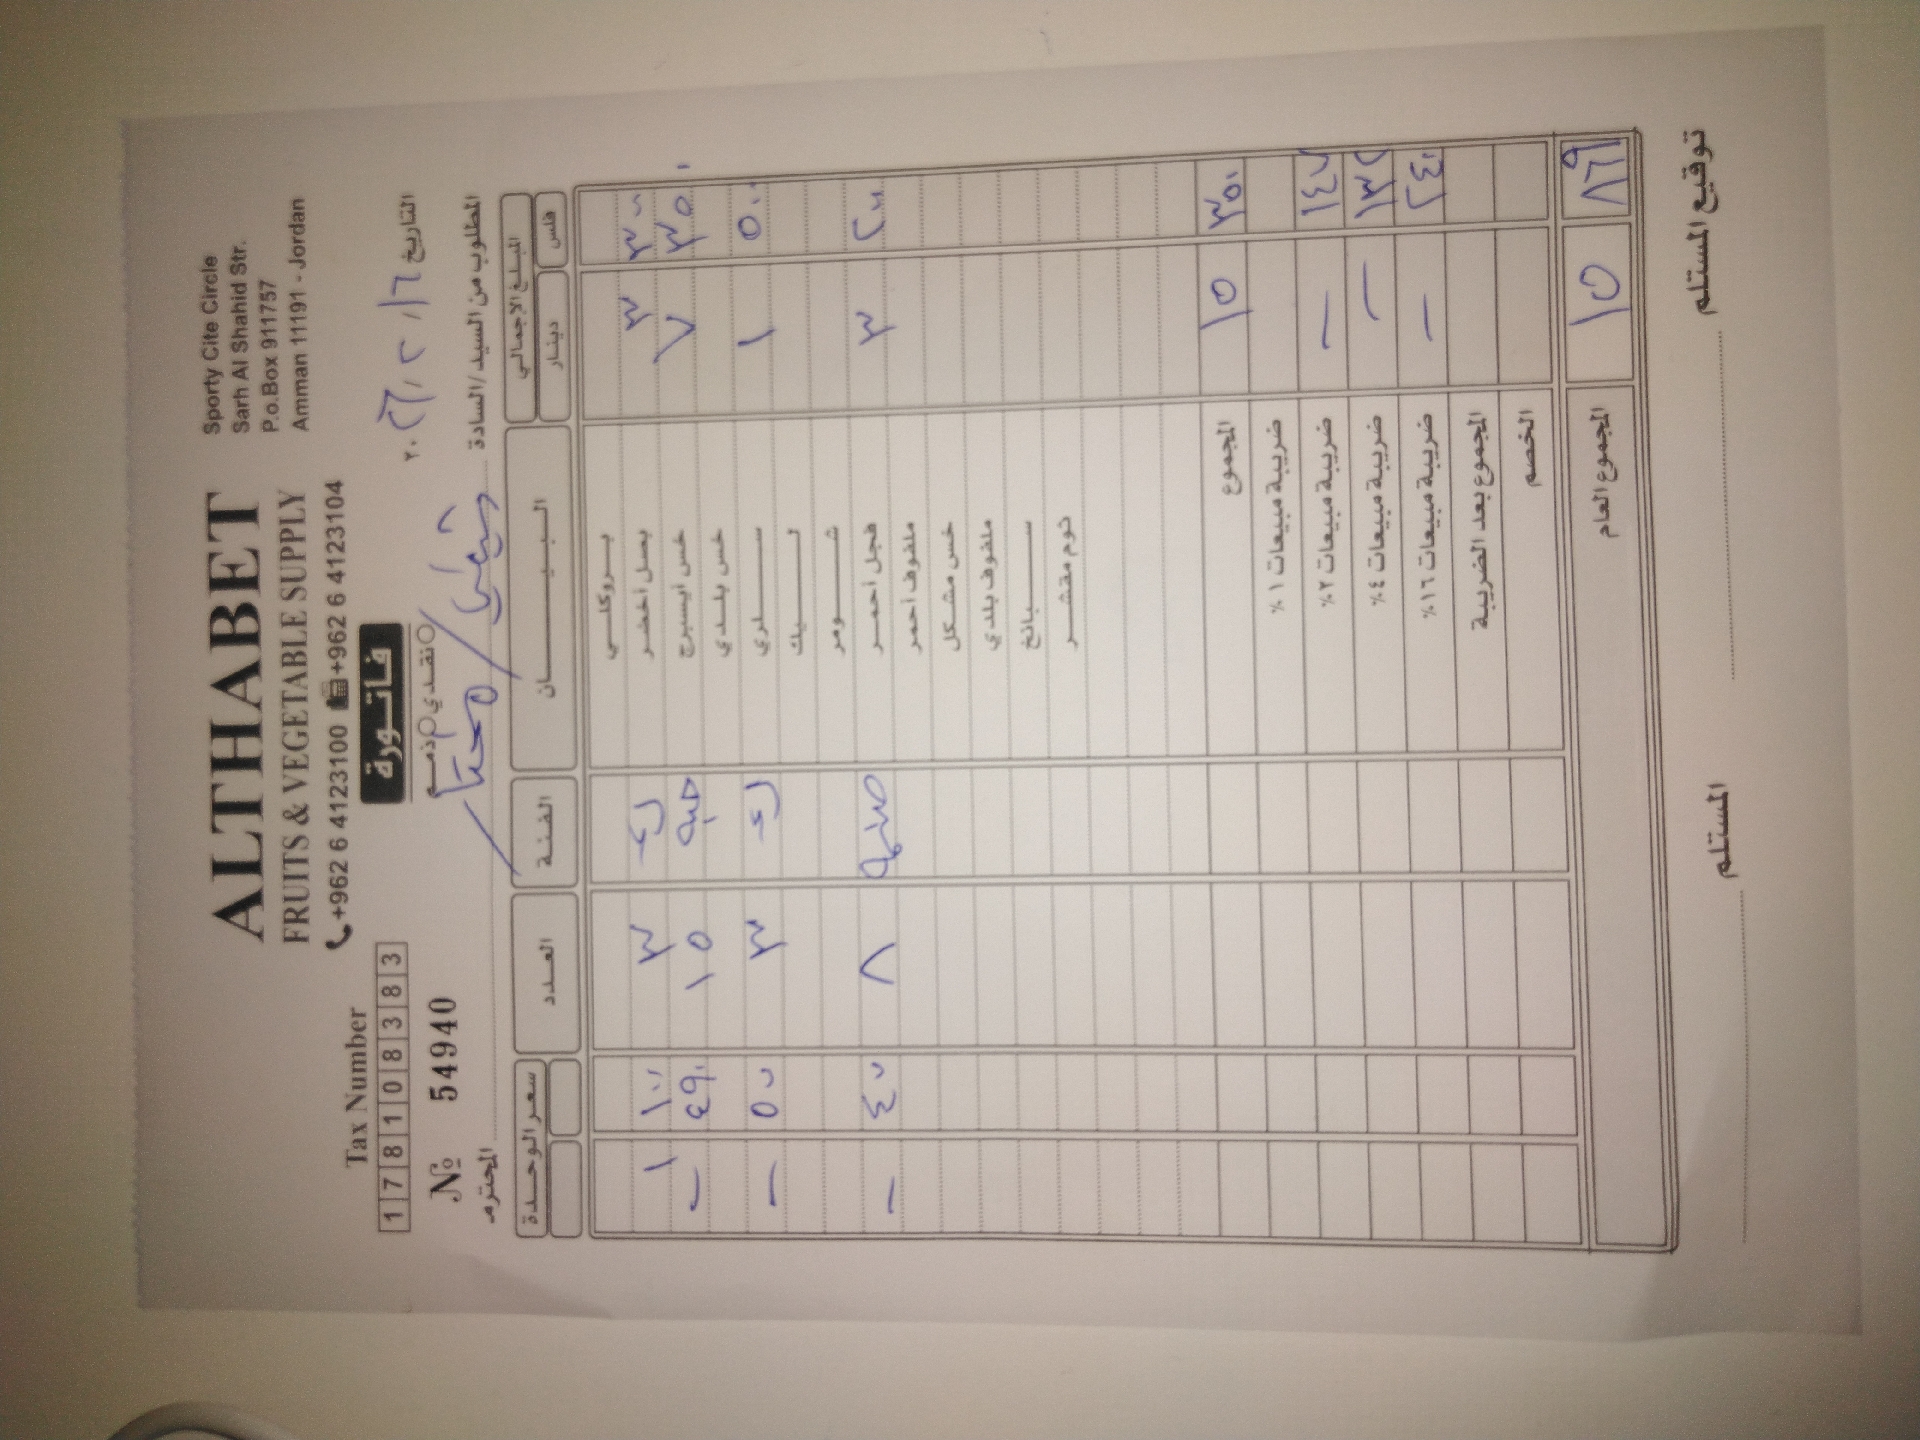 ALTHABET
FRUITS & VEGETABLE SUPPLY
+962 6 4123100 +962 6 4123104
Sporty Cite Circle
Sarh Al Shahid Str.
P.o.Box 911757
Amman 11191 - Jordan
Tax Number
178108383
№ 54940
فاتورة
نقدي ذمم
التاريخ ٦ / ٢ / ٢٠٢٦
المطلوب من السيد/السادة المحترم
المبلغ الإجمالي البيـــــان الفئة العدد سعر الوحدة
فلس دينار
بروكلي
٣٠٠ ٣ بصل أخضر ك ٣ ١٠٠ ١
٣٥٠ ٧ خس أيسبرج حبه ١٥ ٤٩٠ -
خس بلدي
٥٠٠ ١ سلري ك ٣ ٥٠٠ -
ليك
شومر
٢٠٠ ٣ فجل أحمر ٨ ٤٠٠ -
ملفوف أحمر
خس مشكل
ملفوف بلدي
سبانخ
ثوم مقشر
٣٥٠ ١٥ المجموع
ضريبة مبيعات ١ %
١٤٧ - ضريبة مبيعات ٢%
١٣٢ - ضريبة مبيعات ٤%
٢٤٠ - ضريبة مبيعات ١٦%
المجموع بعد الضريبة
الخصم
٨٦٩ ١٥ المجموع العام
توقيع المستلم المستلم